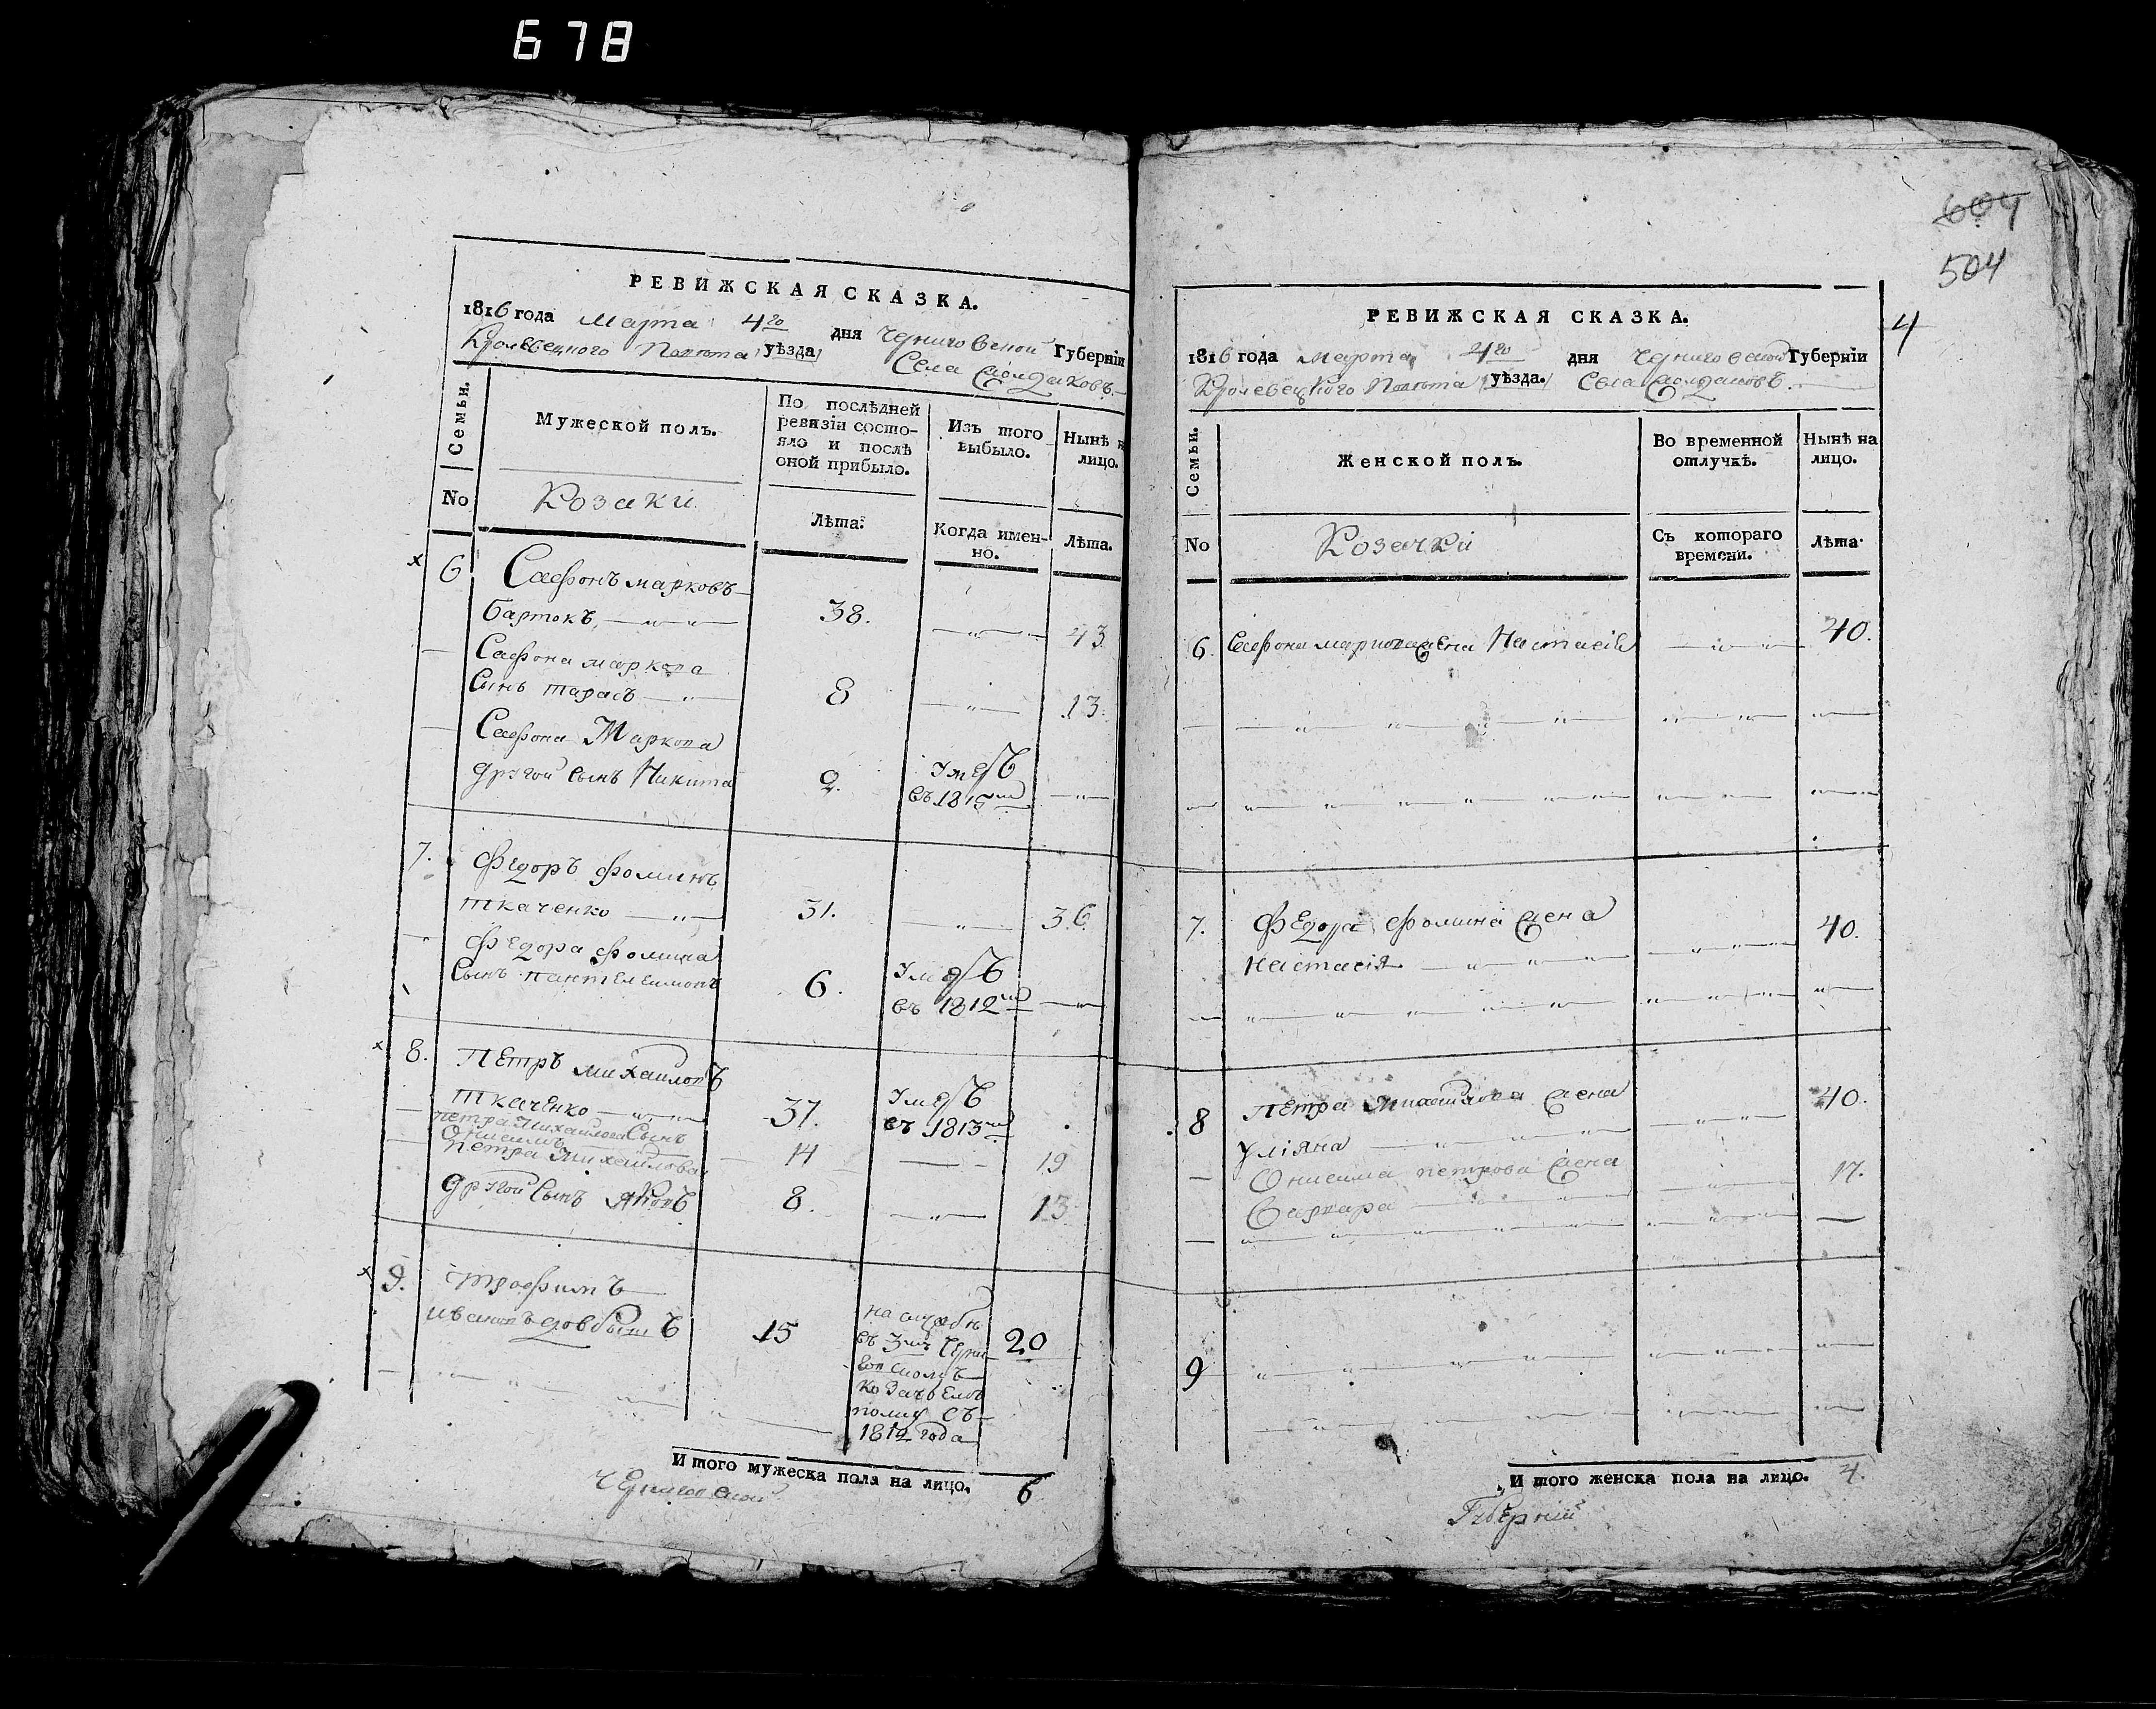 678
РЕВИЖСКАЯ СКАЗКА.
1816 года Марта 4го дня Черниговской Губернїи
Кролевецкого Повѣта уѣзда Села
Семьи.
Мужеской полъ.
По послѣдней ревизїи состо-
яло и послѣ
оной прибыло.
Изъ того
выбыло.
Нынѣ н
лицо.
No
Козаки
Лѣта.
Когда имен-
но.
Лѣта.
6 Сафонъ марковъ
38. 43
Сафона маркова
Сынъ тарасъ 8 13.
Сафона Маркова
другой Сынъ Никита 2. умеръ
въ 1815м
7. Федоръ Фоминъ
ткаченко 31. 36
Федора Фомина
Сынъ пантелеимонъ 6. умеръ
въ 1812м
8. Петръ михаиловъ
ткаченко 37. умеръ
въ 1813м
петра михаилова Сынъ
Онисимъ 14 19
петра михаилова
другой Сынъ 8. 13
9. трофимъ
ивановъ довбышъ 15 20
на службѣ
въ 3мъ Черни
говскомъ
полку съ
1812 года
И того мужеска пола на лицо. 6
Черниговской
604
504
4
РЕВИЖСКАЯ СКАЗКА.
1816 года марта 4го дня Черниговской Губернїи
Кролевецкого Повѣта уѣзда. Села
Семьи.
Женской полъ.
Во временной
отлучкѣ.
Нынѣ на
лицо.
No
Козачки
Съ котораго
времени.
Лѣта
6. Сафона маркова жена Настасія 40.
7. Федора Фомина жена
настасія 40.
8 Петра Михаилова жена
уліяна 40.
Онисима петрова жена
Варвара 17.
9
И того женска пола на лицо. 4.
Губерніи